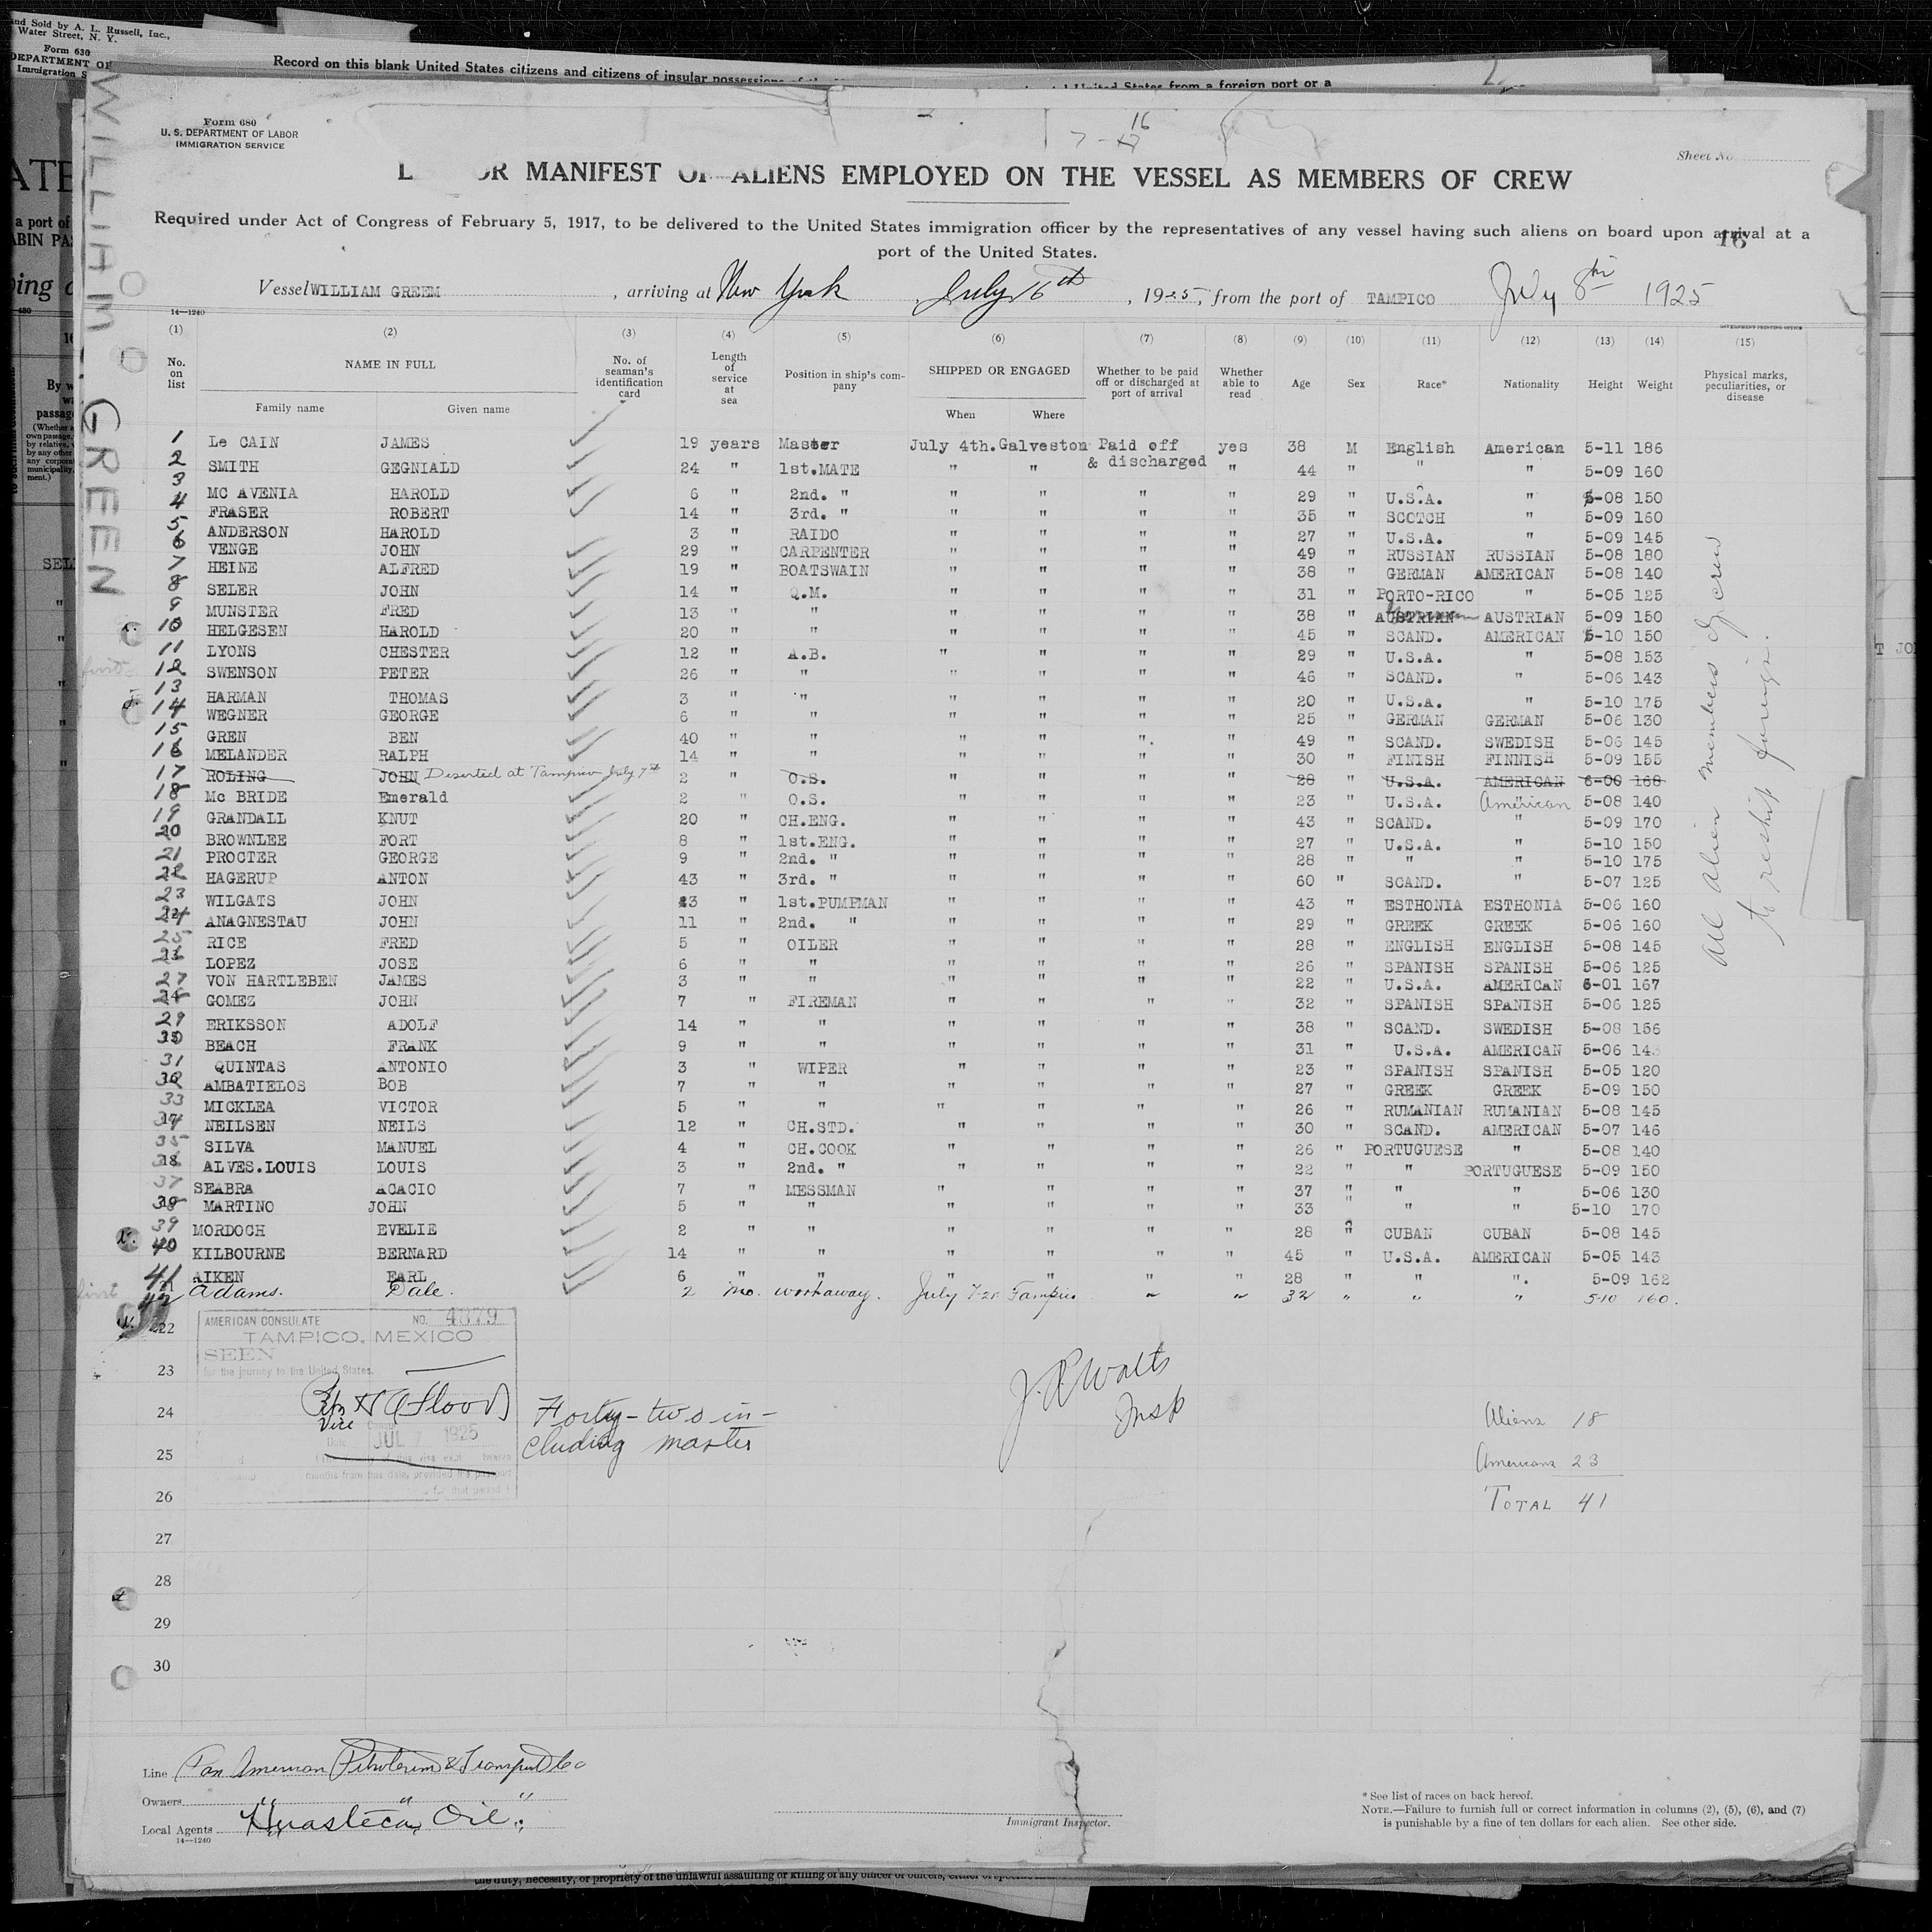 and Sold by A. L. Russell, Inc.,
Water Street, N. Y.
Form 630
DEPARTMENT OF
Immigration S
Record on this blank United States citizens and citizens of insular possessions
United States from a foreign port or a
WILLIAM GREEN
Form 680
U. S. DEPARTMENT OF LABOR
IMMIGRATION SERVICE
16
7-17
Sheet No.
L OR MANIFEST OF ALIENS EMPLOYED ON THE VESSEL AS MEMBERS OF CREW
Required under Act of Congress of February 5, 1917, to be delivered to the United States immigration officer by the representatives of any vessel having such aliens on board upon arrival at a
port of the United States.
16
Vessel WILLIAM GREEM , arriving at New York , July 16th , 1925, from the port of TAMPICO July 8th 1925
14—1240
GOVERNMENT PRINTING OFFICE
(1) (2) (3) (4) (5) (6) (7) (8) (9) (10) (11) (12) (13) (14) (15)
No. on list NAME IN FULL No. of seaman's identification card Length of service at sea Position in ship's company SHIPPED OR ENGAGED Whether to be paid off or discharged at port of arrival Whether able to read Age Sex Race* Nationality Height Weight Physical marks, peculiarities, or disease
Family name Given name When Where
1 Le CAIN JAMES 19 years Master July 4th. Galveston Paid off & discharged yes 38 M English American 5-11 186
2 SMITH GEGNIALD 24 " 1st.MATE " " " 44 " " " 5-09 160
3 MC AVENIA HAROLD 6 " 2nd. " " " " " 29 " U.S.A. " 5-08 150
4 FRASER ROBERT 14 " 3rd. " " " " " 35 " SCOTCH " 5-09 160
5 ANDERSON HAROLD 3 " RAIDO " " " " 27 " U.S.A. " 5-09 145
6 VENGE JOHN 29 " CARPENTER " " " " 49 " RUSSIAN RUSSIAN 5-08 180
7 HEINE ALFRED 19 " BOATSWAIN " " " " 38 " GERMAN AMERICAN 5-08 140
8 SELER JOHN 14 " Q.M. " " " " 31 " PORTO-RICO " 5-05 125
9 MUNSTER FRED 13 " " " " " " 38 " AUSTRIAN AUSTRIAN 5-09 150
10 HELGESEN HAROLD 20 " " " " " " 45 " SCAND. AMERICAN 5-10 150
11 LYONS CHESTER 12 " A.B. " " " " 29 " U.S.A. " 5-08 153
12 SWENSON PETER 26 " " " " " " 46 " SCAND. " 5-06 143
13 HARMAN THOMAS 3 " " " " " " 20 " U.S.A. " 5-10 175
14 WEGNER GEORGE 6 " " " " " " 25 " GERMAN GERMAN 5-06 130
15 GREN BEN 40 " " " " " " 49 " SCAND. SWEDISH 5-06 145
16 MELANDER RALPH 14 " " " " " " 30 " FINISH FINNISH 5-09 155
17 ROLING JOHN Deserted at Tampico July 7th 2 " O.S. " " " " 28 " U.S.A. AMERICAN 6-00 168
18 Mc BRIDE Emerald 2 " O.S. " " " " 23 " U.S.A. American 5-08 140
19 GRANDALL KNUT 20 " CH.ENG. " " " " 43 " SCAND. " 5-09 170
20 BROWNLEE FORT 8 " 1st.ENG. " " " " 27 " U.S.A. " 5-10 150
21 PROCTER GEORGE 9 " 2nd. " " " " " 28 " " " 5-10 175
22 HAGERUP ANTON 43 " 3rd. " " " " " 60 " SCAND. " 5-07 125
23 WILGATS JOHN 23 " 1st.PUMPMAN " " " " 43 " ESTHONIA ESTHONIA 5-06 160
24 ANAGNESTAU JOHN 11 " 2nd. " " " " " 29 " GREEK GREEK 5-06 160
25 RICE FRED 5 " OILER " " " " 28 " ENGLISH ENGLISH 5-08 145
26 LOPEZ JOSE 6 " " " " " " 26 " SPANISH SPANISH 5-06 125
27 VON HARTLEBEN JAMES 3 " " " " " " 22 " U.S.A. AMERICAN 6-01 167
28 GOMEZ JOHN 7 " FIREMAN " " " " 32 " SPANISH SPANISH 5-06 125
29 ERIKSSON ADOLF 14 " " " " " " 38 " SCAND. SWEDISH 5-08 156
30 BEACH FRANK 9 " " " " " " 31 " U.S.A. AMERICAN 5-06 143
31 QUINTAS ANTONIO 3 " WIPER " " " " 23 " SPANISH SPANISH 5-05 120
32 AMBATIELOS BOB 7 " " " " " " 27 " GREEK GREEK 5-09 150
33 MICKLEA VICTOR 5 " " " " " " 26 " RUMANIAN RUMANIAN 5-08 145
34 NEILSEN NEILS 12 " CH.STD. " " " " 30 " SCAND. AMERICAN 5-07 146
35 SILVA MANUEL 4 " CH.COOK " " " " 26 " PORTUGUESE " 5-08 140
36 ALVES.LOUIS LOUIS 3 " 2nd. " " " " " 22 " " PORTUGUESE 5-09 150
37 SEABRA ACACIO 7 " MESSMAN " " " " 37 " " " 5-06 130
38 MARTINO JOHN 5 " " " " " " 33 " " " 5-10 170
39 MORDOCH EVELIE 2 " " " " " " 28 " CUBAN CUBAN 5-08 145
40 KILBOURNE BERNARD 14 " " " " " " 45 " U.S.A. AMERICAN 5-05 143
41 AIKEN EARL 6 " " " " " " 28 " " ". 5-09 162
42 Adams. Dale. 2 mo. workaway. July 7-25 Tampico " " 32 " " " 5-10 160.
All Alien members of crew
to reship foreign.
22
23
24
25
26
27
28
29
30
AMERICAN CONSULATE NO. 4879
TAMPICO, MEXICO
SEEN
for the journey to the United States.
Vice Consul
Date JUL 7 1925
months from this date, provided
for that period
Forty-two in-
cluding master
J. R. Watts
Insp
Aliens 18
Americans 23
TOTAL 41
Line Pan American Petroleum & Transport Co
Owners " " "
Local Agents Huasteca Oil.
14—1240
Immigrant Inspector.
* See list of races on back hereof.
NOTE.—Failure to furnish full or correct information in columns (2), (5), (6), and (7)
is punishable by a fine of ten dollars for each alien. See other side.
the duty, necessity, or propriety of the unlawful assaulting or killing of any officer or officers,